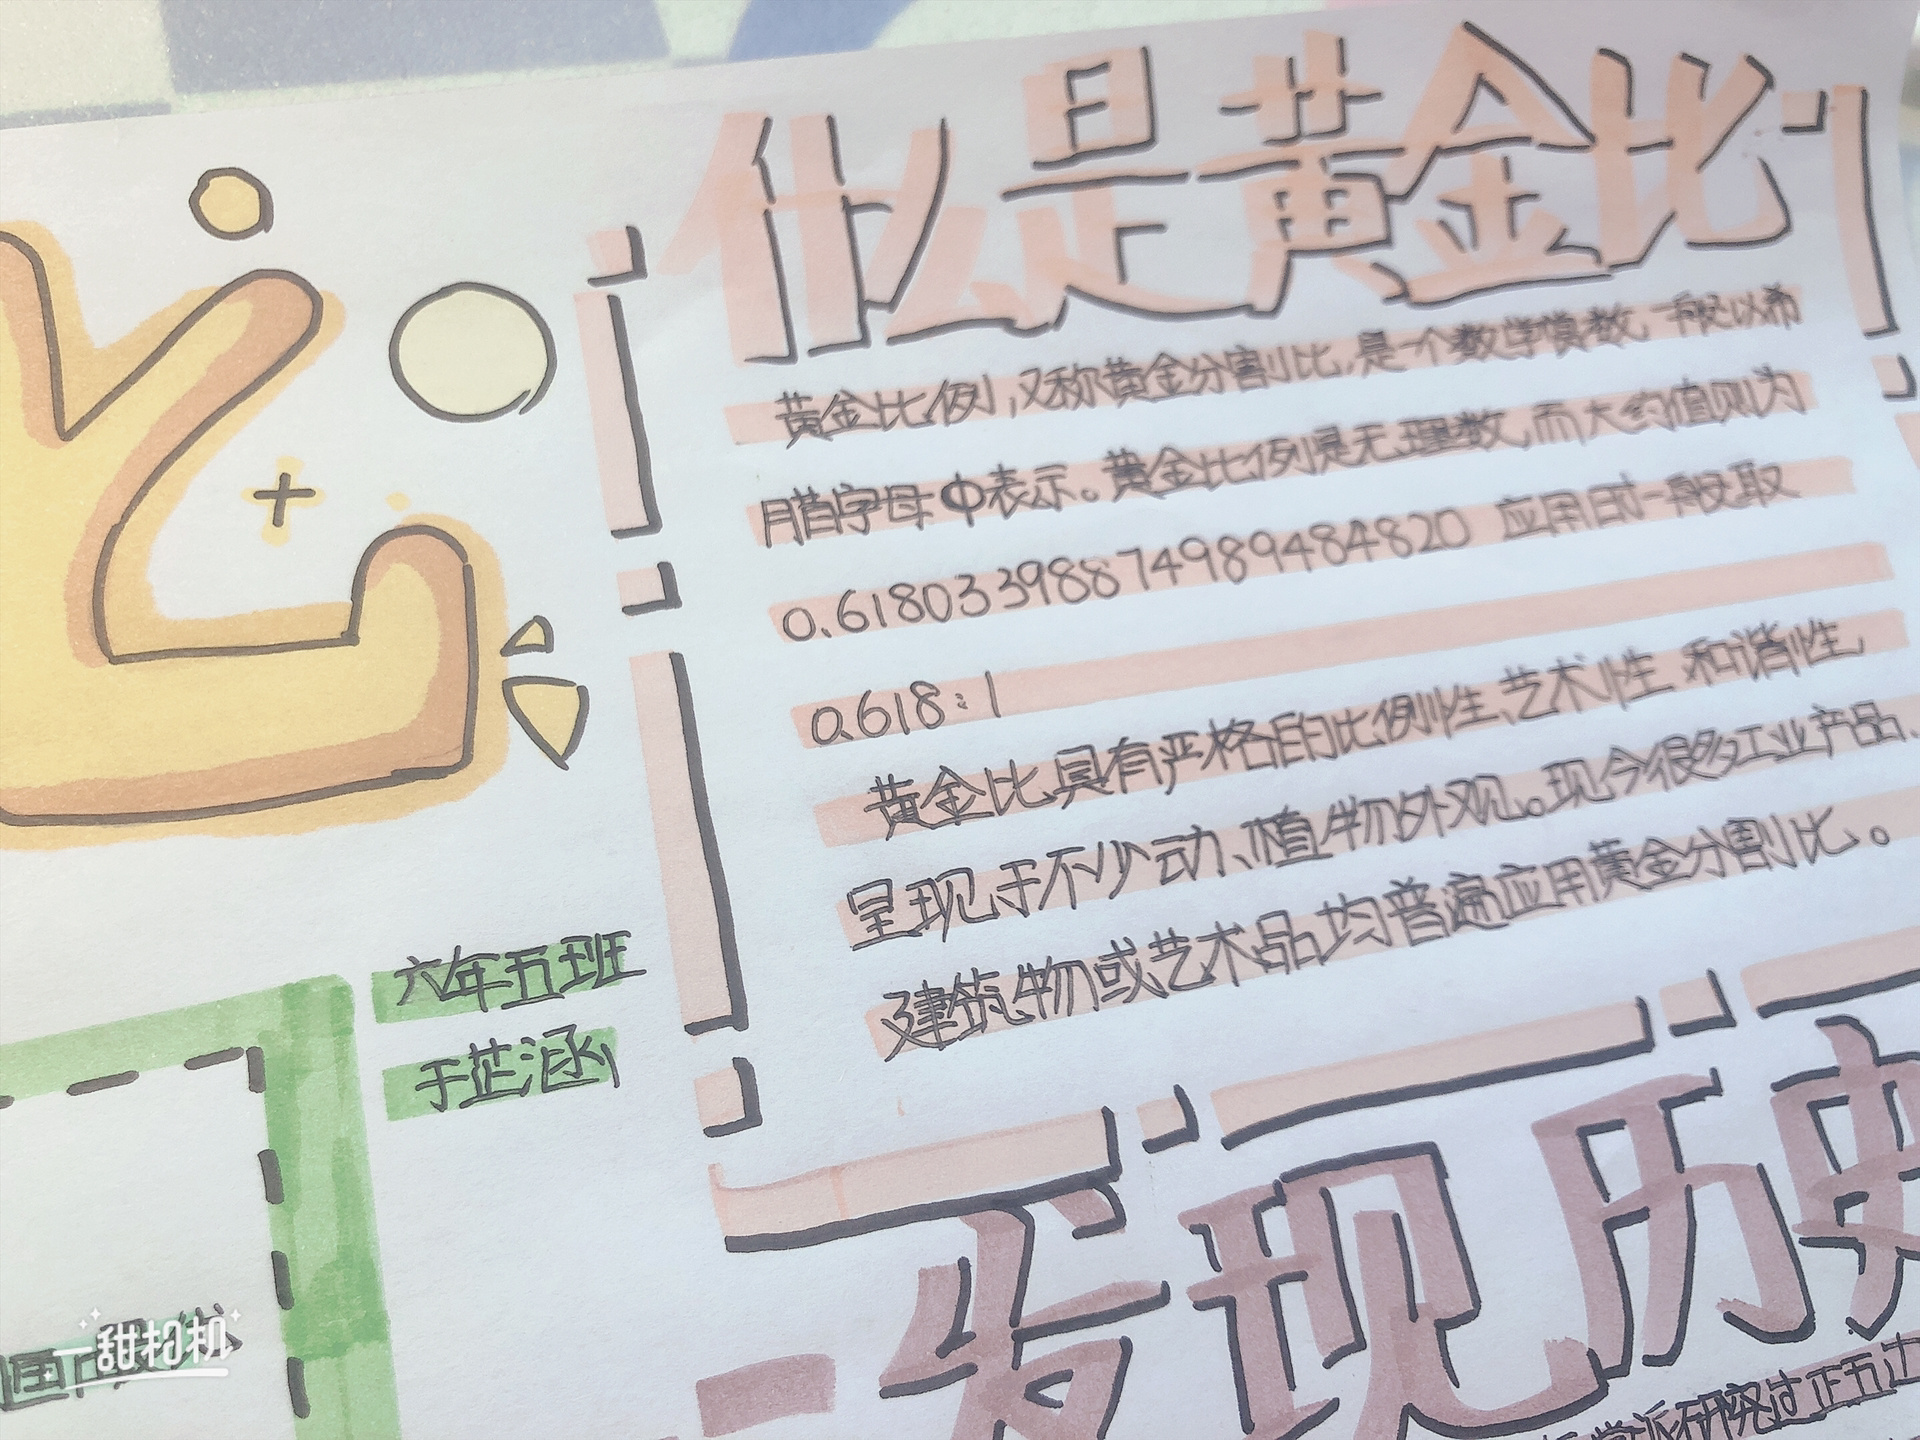 什么是黄金比
黄金比例，又称黄金分割比，是一个数学常数，一般以希
腊字母Φ表示。黄金比例是无理数，而大约值则为
0.61803398874989484820 应用时一般取
0.618:1
黄金比具有严格的比例性、艺术性 和谐性，
呈现于不少动、植物外观。现今很多工业产品、
建筑物或艺术品均普遍应用黄金分割比。
比
六年五班
于芷涵
发现历史
学派研究过正五
甜相机